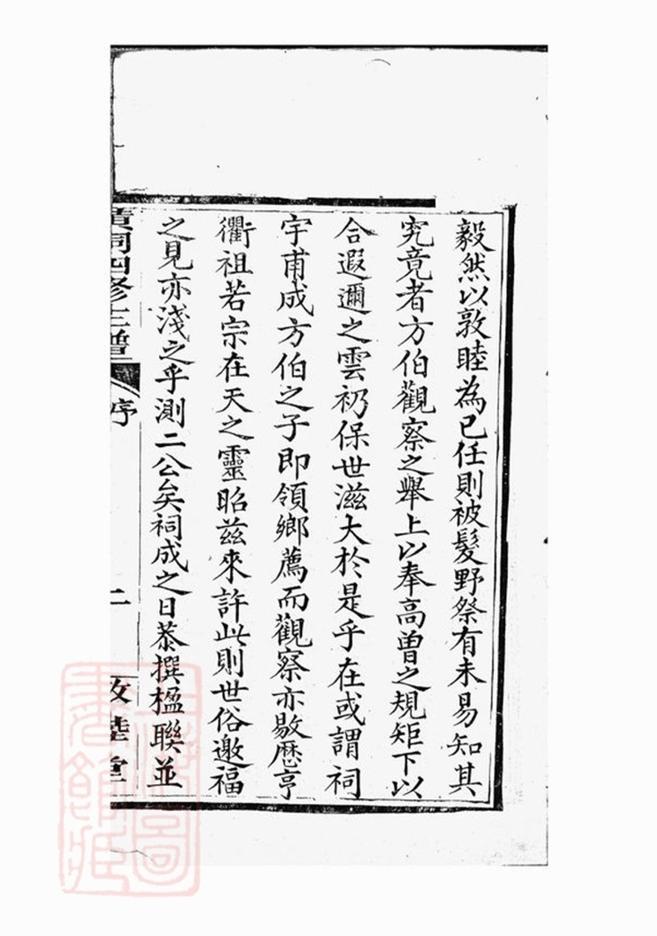 毅然以敦睦為已任則被髮野祭有未易知其
究竟者方伯觀察之舉上以奉高曾之規矩下以
合遐邇之雲礽保世滋大於是乎在或謂祠
宇甫成方伯之子即領鄉薦而觀察亦敭歷亨
衢祖若宗在天之靈昭兹來許此則世俗邀福
之見亦淺之乎測二公矣祠成之日恭撰楹聯並
黃祠四修主譜
序
二
敦睦堂